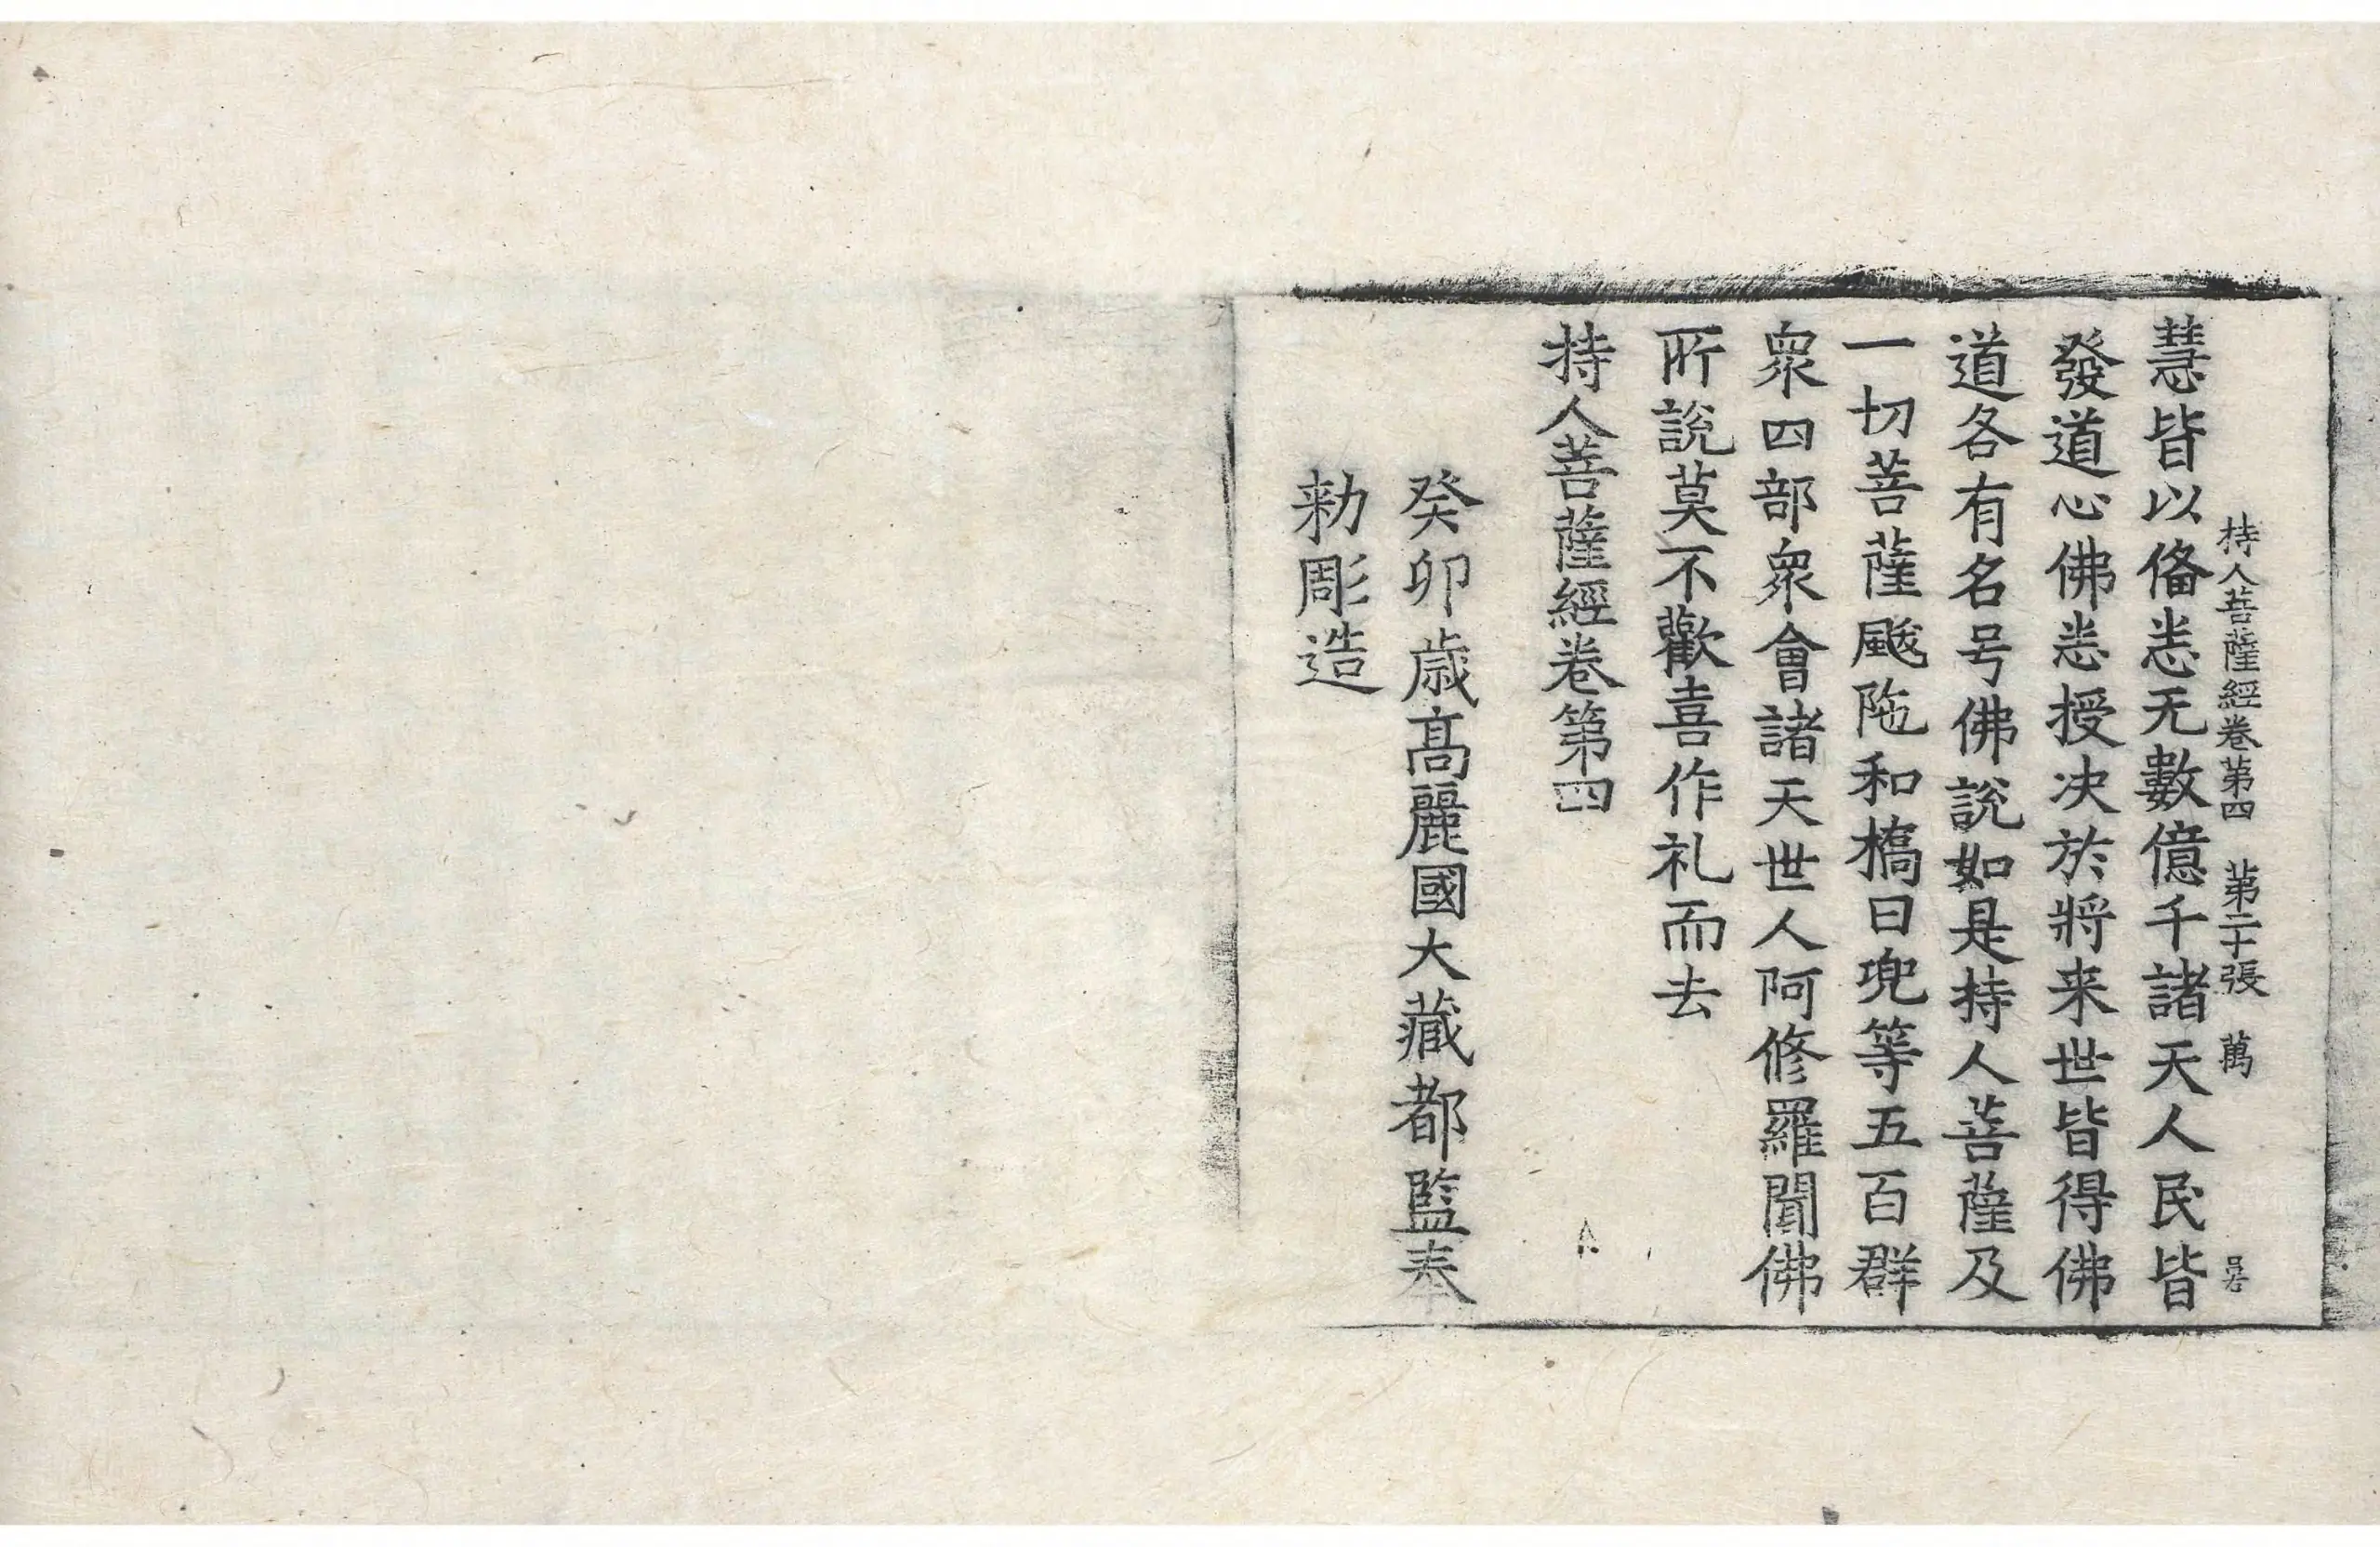 持人菩薩經卷第四 第二十張 萬
慧皆以俻悉无數億千諸天人民皆
發道心佛悉授决於將来世皆得佛
道各有名号佛說如是持人菩薩及
一切菩薩颰陁和樀曰兜等五百群
衆四部衆會諸天世人阿修羅聞佛
所說莫不歡喜作礼而去
持人菩薩經卷第四
癸卯歳髙麗國大藏都監奉
勑彫造